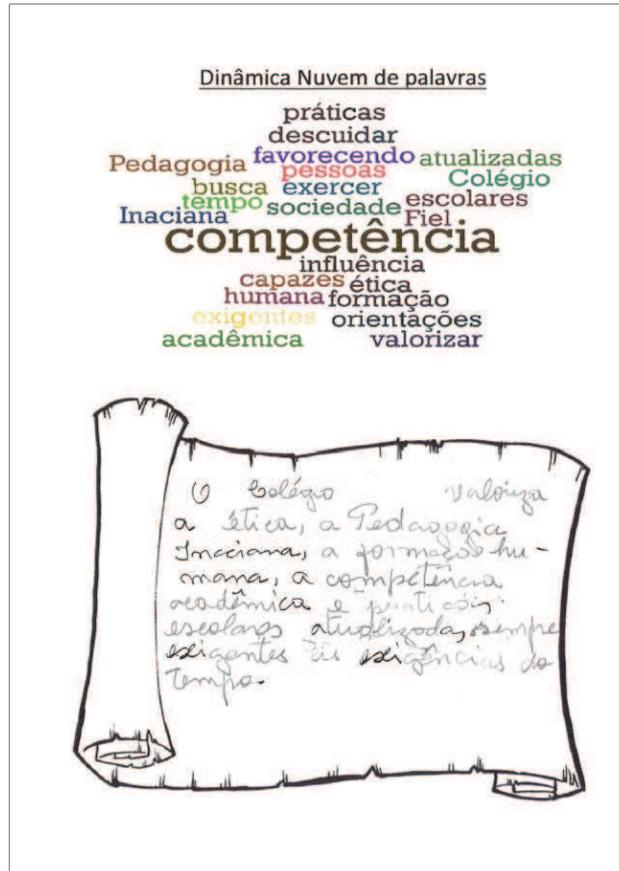 Dinâmica Nuvem de palavras
práticas
descuidar
Pedagogia favorecendo atualizadas
pessoas Colégio
busca exercer
tempo sociedade escolares
Inaciana Fiel
competência
influência
capazes ética
humana formação
exigentes orientações
acadêmica valorizar
O Colégio valoriza
a ética, a Pedagogia
Inaciana, a formação hu-
mana, a competência
acadêmica e práticas
escolares atualizadas, sempre
exigentes às exigências do
tempo.